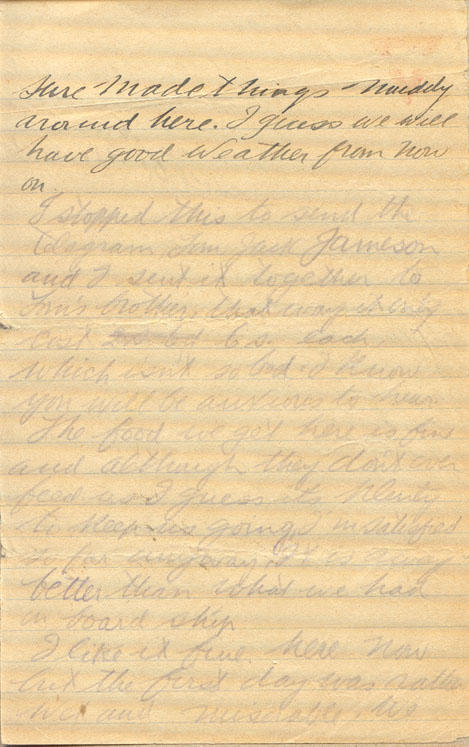 sure made things muddy
around here. I guess we will
have good weather from now
on.
I stopped this to send the
telegram Tom Jack Jameson
and I sent it together to
Tom's brother, that way it only
cost 6s. each
which isn't so bad. I know
you will be anxious to hear.
The food we get here is fine
and although they don't over
feed us I guess its plenty
to keep us going. I'm satisfied
so far anyway. It is away
better than what we had
on board ship
I like it fine here now
but the first day was rather
wet and miserable. We